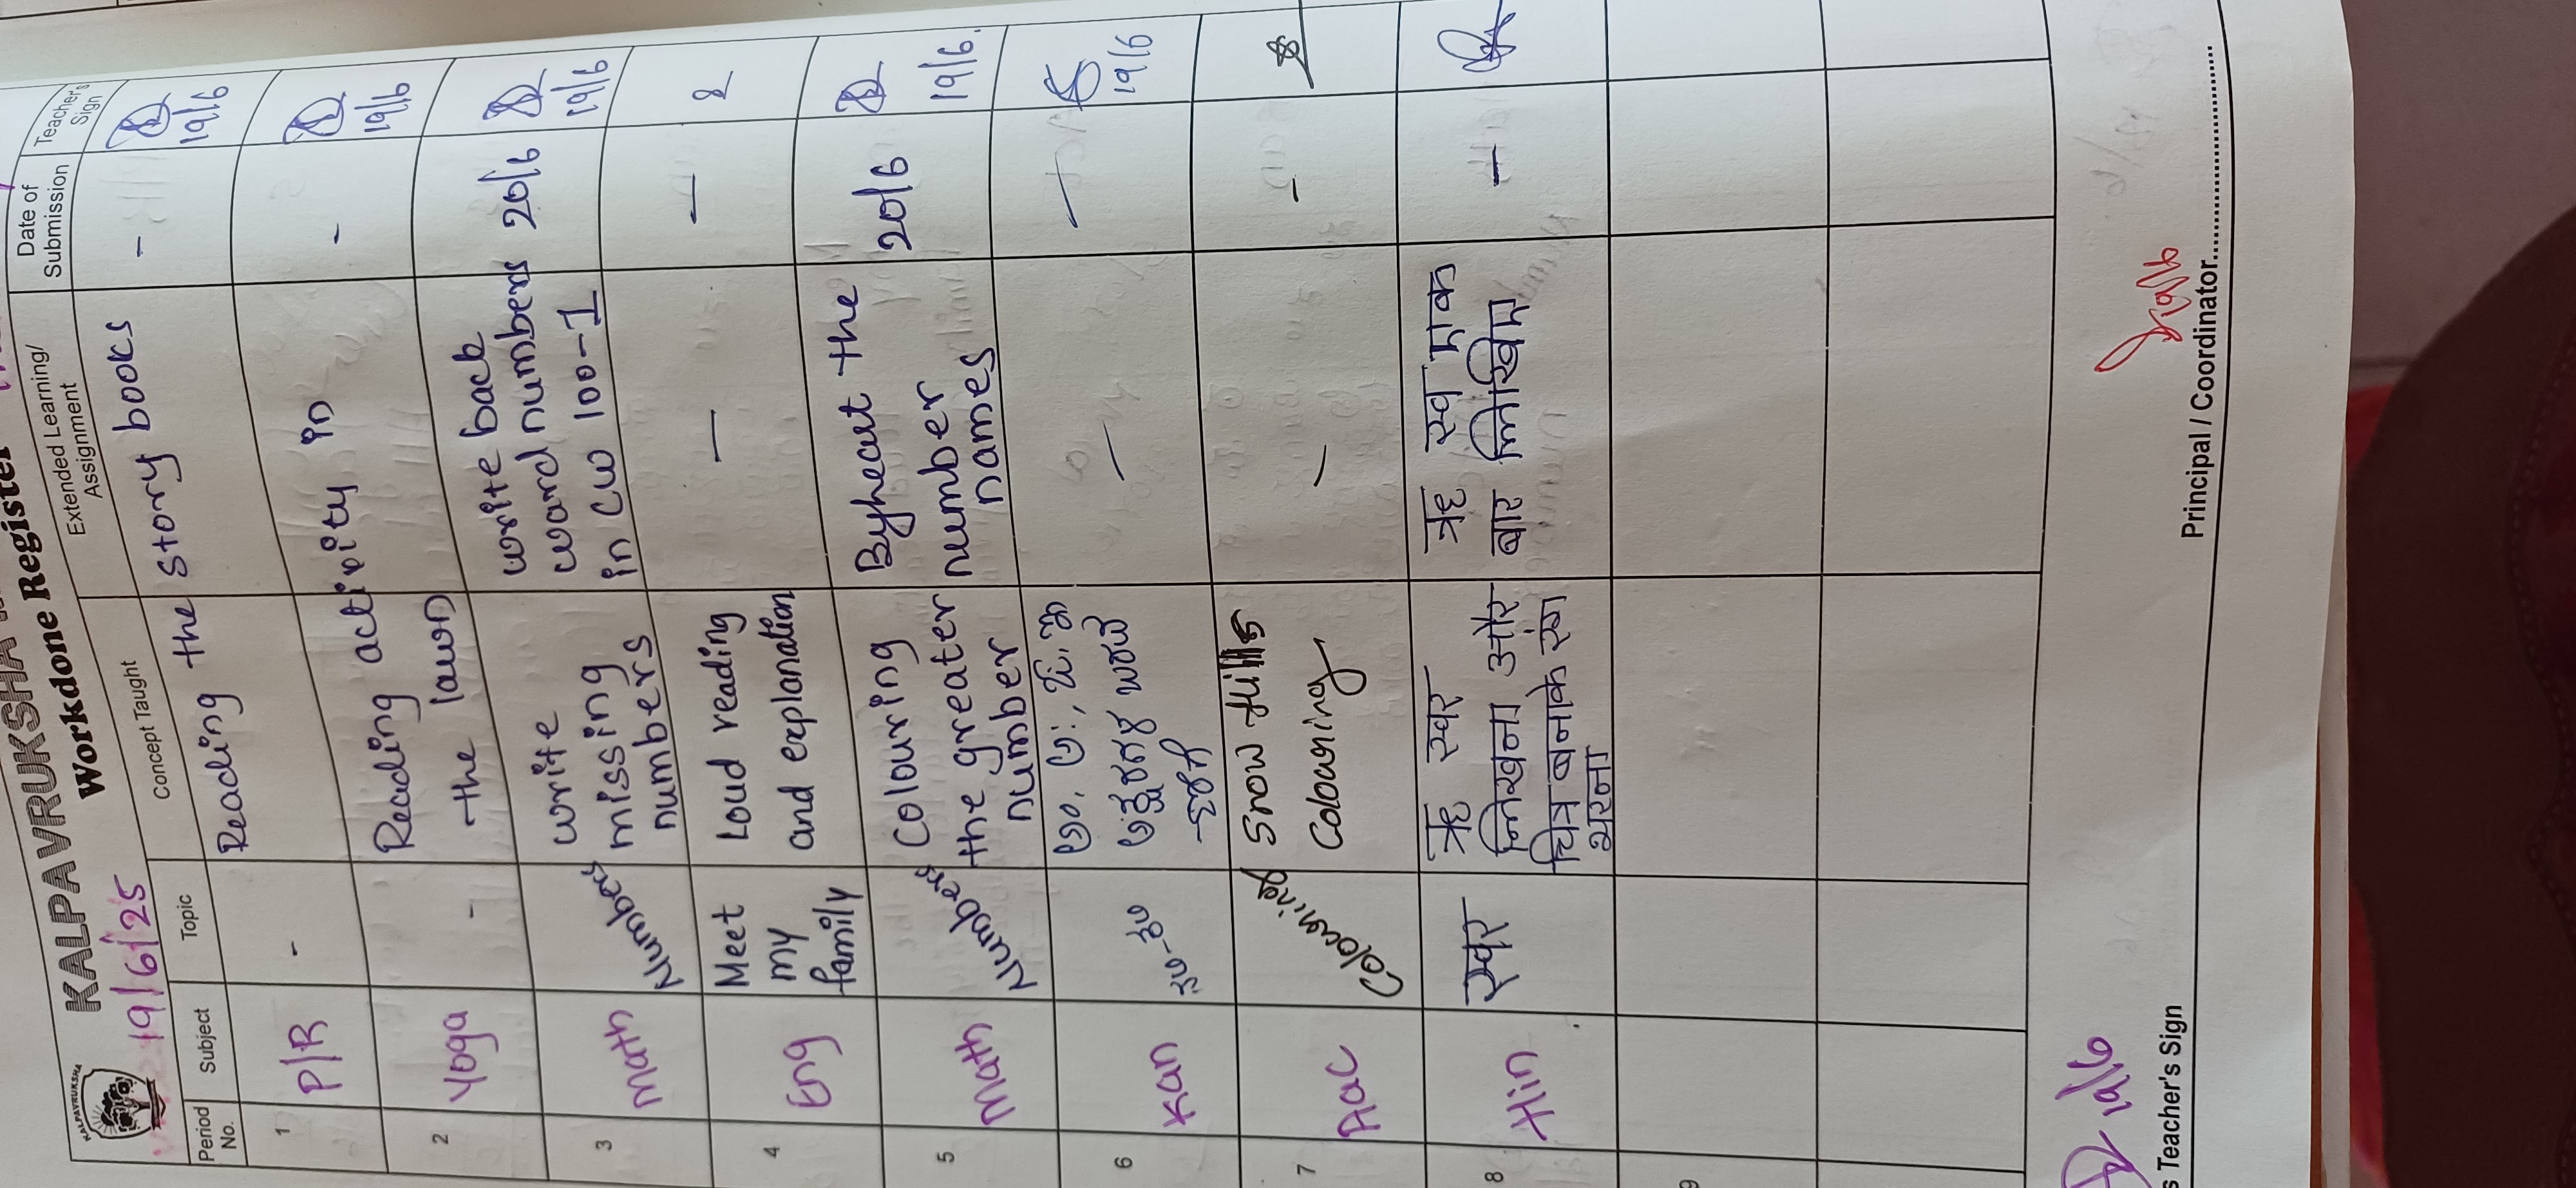 KALPAVRUKSHA
KALPAVRUKSHA
Workdone Register
19/6/25
Period No.
Subject
Topic
Concept Taught
Extended Learning/ Assignment
Date of Submission
Teacher's Sign
1
P/R
-
Reading the story books
-
19/6
2
Yoga
-
Reading activity in
the lawn
-
19/6
3
Math
Numbers
write
missing
numbers
write back
ward numbers
in CW 100-1
20/6
19/6
4
Eng
Meet
my
family
Loud reading
and explanation
—
—
5
Math
Numbers
Colouring
the greater
number
Byheart the
number
names
20/6
19/6.
6
Kan
—
—
19/6
7
Colouring
Snow Hills
Colouring
-
-
8
Hin
स्वर
ऋ स्वर
लिखना और
चित्र बनाके रंग
भरना
बार लिखिए
-
9
19/6
s Teacher's Sign
19/6
Principal / Coordinator